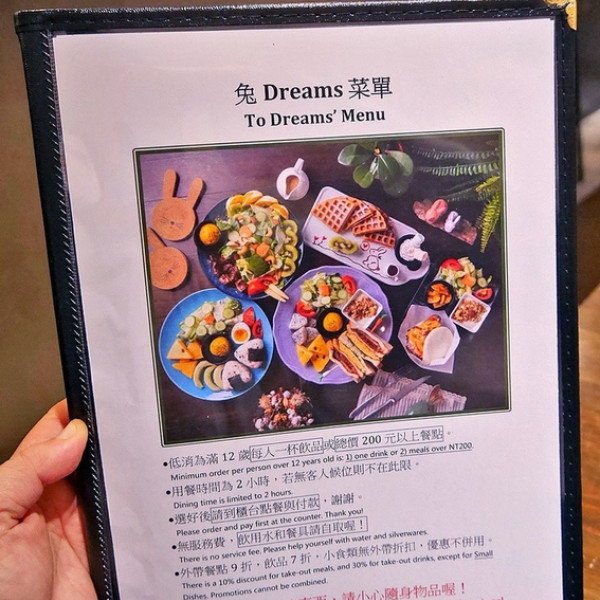 兔 Dreams 菜單
To Dreams' Menu
•低消為滿 12 歲每人一杯飲品或總價 200 元以上餐點。
Minimum order per person over 12 years old is: 1) one drink or 2) meals over NT200.
•用餐時間為 2 小時，若無客人候位則不在此限。
Dining time is limited to 2 hours.
•選好後請到櫃台點餐與付款，謝謝。
Please order and pay first at the counter. Thank you!
•無服務費，飲用水和餐具請自取喔！
There is no service fee. Please help yourself with water and silverwares.
•外帶餐點 9 折，飲品 7 折，小食類無外帶折扣，優惠不併用。
There is a 10% discount for take-out meals, and 30% for take-out drinks, except for Small
Dishes. Promotions cannot be combined.
，請小心隨身物品喔！